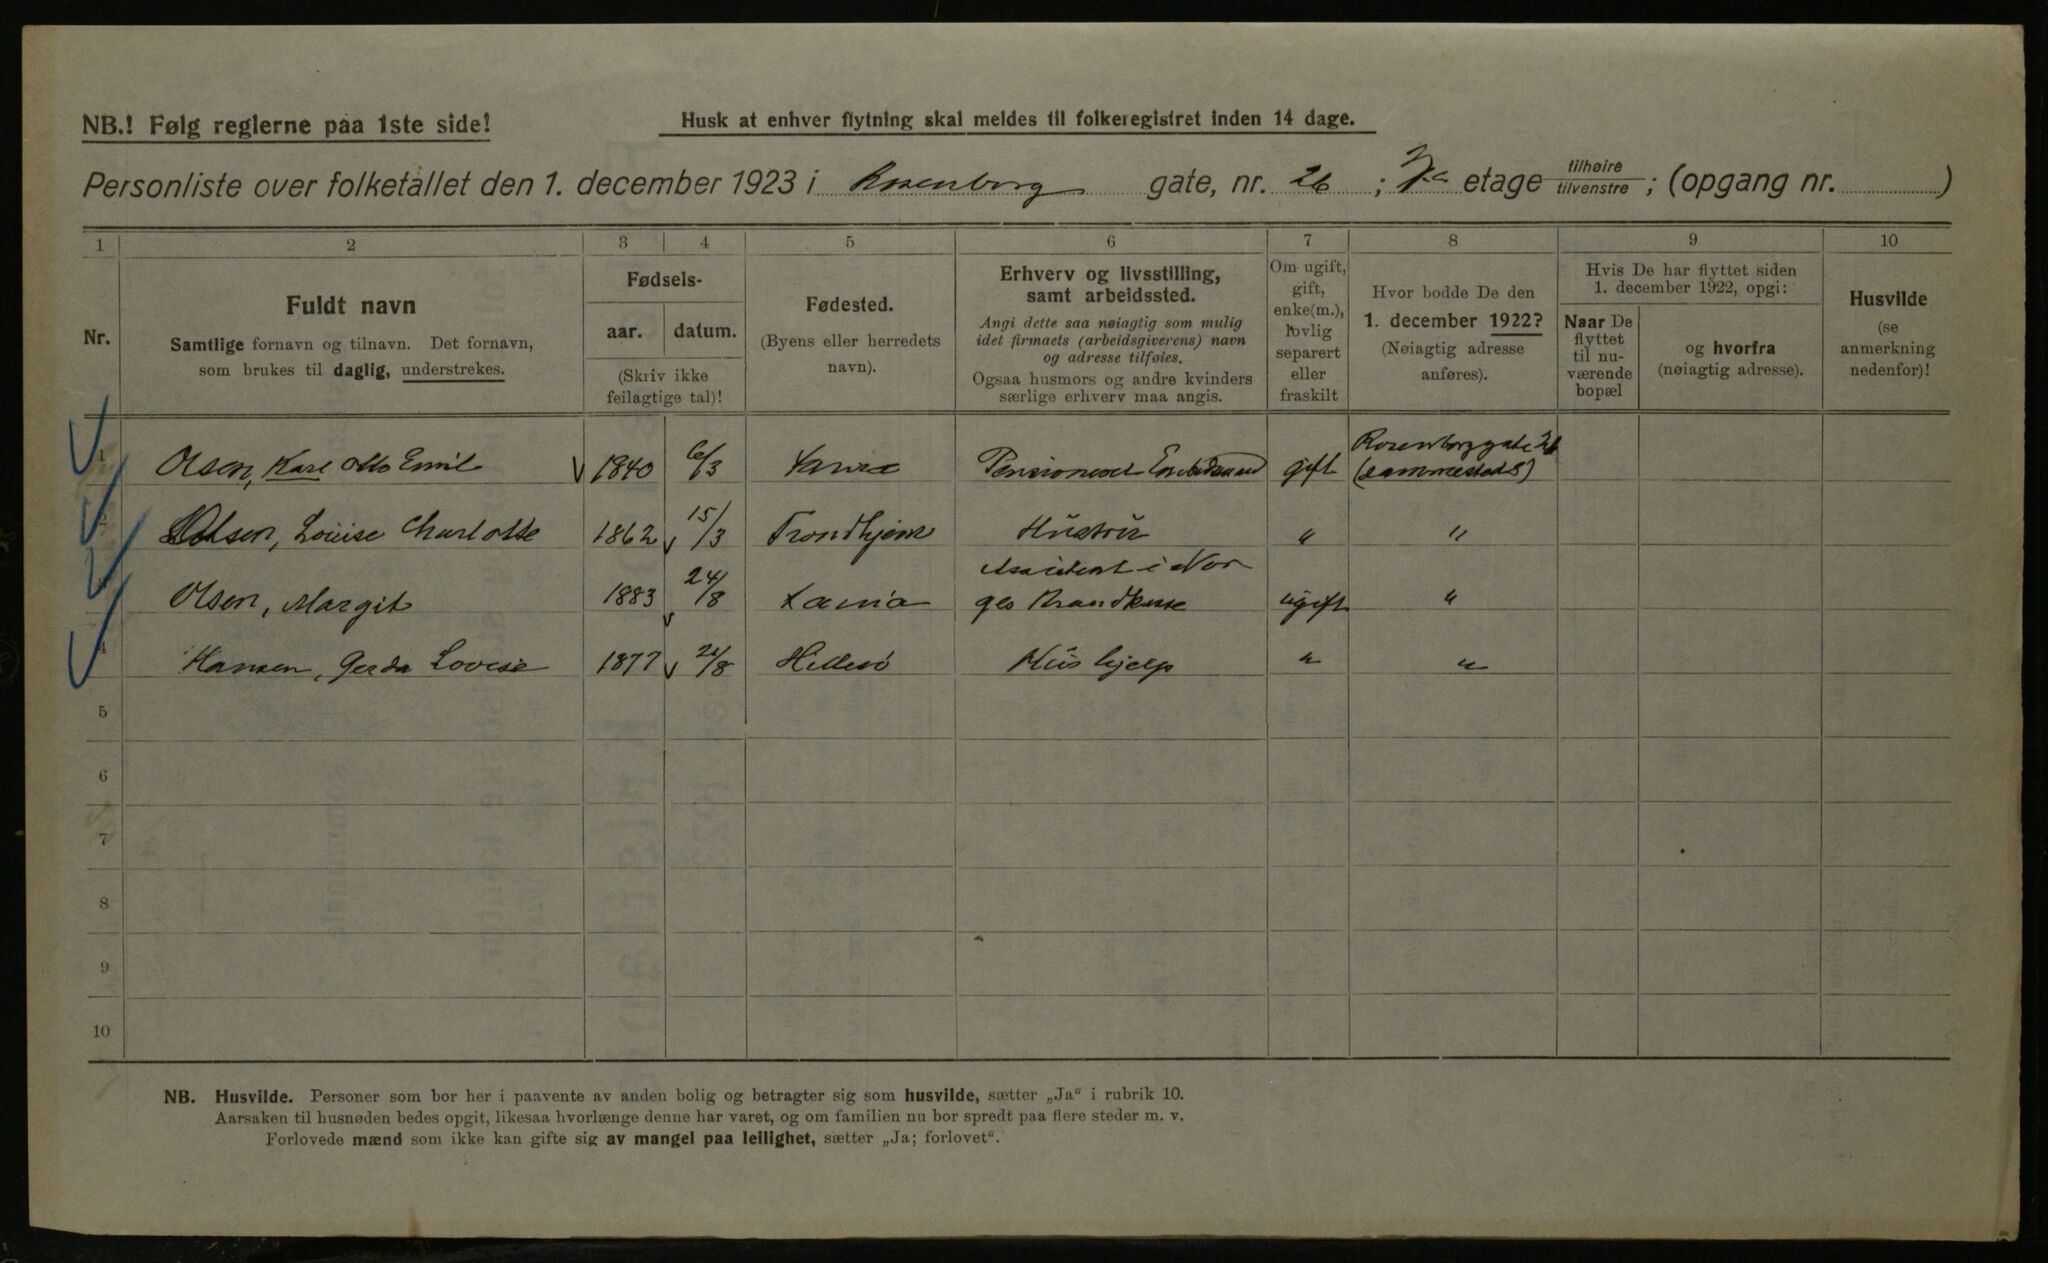 NB.! Følg reglerne paa 1ste side!
Husk at enhver flytning skal meldes til folkeregistret inden 14 dage.
Personliste over folketallet den 1. december 1923 i Rosenborg gate, nr. 26 ; etage tilhøire tilvenstre ; (opgang nr. )
1 2 3 4 5 6 7 8 9 10
Nr.
Fuldt navn
Samtlige fornavn og tilnavn. Det fornavn,
som brukes til daglig, understrekes.
Fødsels-
aar. datum.
(Skriv ikke
feilagtige tal)!
Fødested.
(Byens eller herredets
navn).
Erhverv og livsstilling,
samt arbeidssted.
Angi dette saa nøiagtig som mulig
idet firmaets (arbeidsgiverens) navn
og adresse tilføies.
Ogsaa husmors og andre kvinders
særlige erhverv maa angis.
Om ugift,
gift,
enke(m.),
lovlig
separert
eller
fraskilt
Hvor bodde De den
1. december 1922?
(Nøiagtig adresse
anføres).
Hvis De har flyttet siden
1. december 1922, opgi:
Naar De
flyttet
til nu-
værende
bopæl
og hvorfra
(nøiagtig adresse).
Husvilde
(se
anmerkning
nedenfor)!
1 Olsen, Karl Otto Emil 1840 6/3 Pensioneret gift Rosenborggate 26
(sammesteds)
2 Olsen, Louise Charlotte 1862 15/3 Trondhjem Hustru " "
Olsen, Margit 1883 24/8 Assistent i Nor
ges Brandkasse ugift "
4 Hansen, Gerda Lovise 1877 21/8 Hillesö Hüshjelp " "
5
6
7
8
9
10
NB. Husvilde. Personer som bor her i paavente av anden bolig og betragter sig som husvilde, sætter „Ja“ i rubrik 10.
Aarsaken til husnøden bedes opgit, likesaa hvorlænge denne har varet, og om familien nu bor spredt paa flere steder m. v.
Forlovede mænd som ikke kan gifte sig av mangel paa leilighet, sætter „Ja; forlovet“.